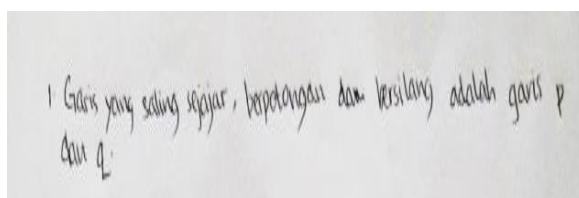 1 Garis yang saling sejajar, berpotongan dan bersilang adalah garis p
dan q.